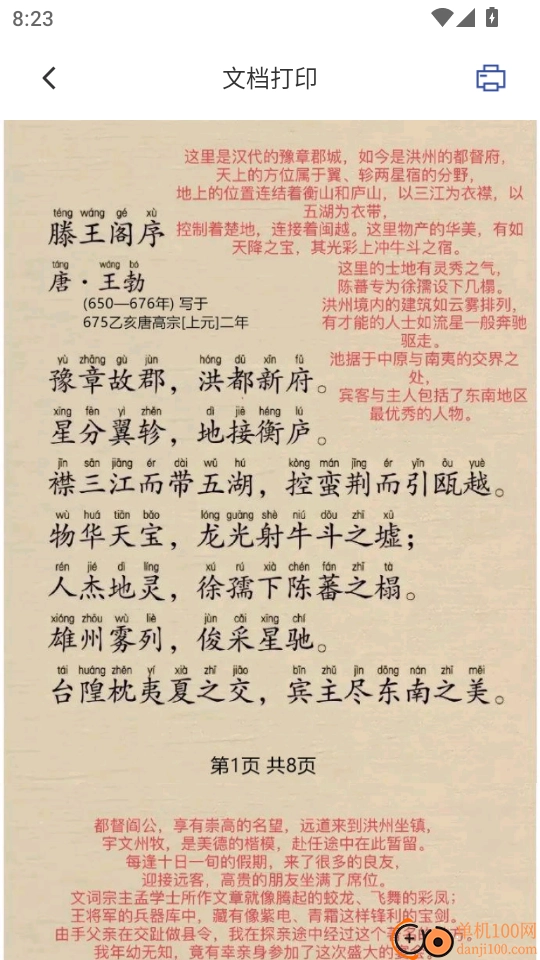 8:23
文档打印
这里是汉代的豫章郡城，如今是洪州的都督府，
天上的方位属于翼、轸两星宿的分野，
地上的位置连结着衡山和庐山，以三江为衣襟，以
五湖为衣带，
控制着楚地，连接着闽越。这里物产的华美，有如
天降之宝，其光彩上冲牛斗之宿。
这里的士地有灵秀之气，
陈蕃专为徐孺设下几榻。
洪州境内的建筑如云雾排列，
有才能的人士如流星一般奔驰
驱走。
池据于中原与南夷的交界之
处，
宾客与主人包括了东南地区
最优秀的人物。
téng wáng gé xù
滕王阁序
táng wáng bó
唐·王勃
(650—676年) 写于
675乙亥唐高宗[上元]二年
yù zhāng gù jùn hóng dū xīn fǔ
豫章故郡，洪都新府。
xīng fēn yì zhěn dì jiē héng lú
星分翼轸，地接衡庐。
jīn sān jiāng ér dài wǔ hú kòng mán jīng ér yǐn ōu yuè
襟三江而带五湖，控蛮荆而引瓯越。
wù huá tiān bǎo lóng guāng shè niú dǒu zhī xū
物华天宝，龙光射牛斗之墟；
rén jié dì líng xú rú xià chén fán zhī tà
人杰地灵，徐孺下陈蕃之榻。
xióng zhōu wù liè jùn cǎi xīng chí
雄州雾列，俊采星驰。
tái huáng zhěn yí xià zhī jiāo bīn zhǔ jìn dōng nán zhī měi
台隍枕夷夏之交，宾主尽东南之美。
第1页 共8页
都督阎公，享有崇高的名望，远道来到洪州坐镇，
宇文州牧，是美德的楷模，赴任途中在此暂留。
每逢十日一旬的假期，来了很多的良友，
迎接远客，高贵的朋友坐满了席位。
文词宗主孟学士所作文章就像腾起的蛟龙、飞舞的彩凤；
王将军的兵器库中，藏有像紫电、青霜这样锋利的宝剑。
由于父亲在交趾做县令，我在探亲途中经过这个
我年幼无知，竟有幸亲身参加了这次盛大的
单机100网
danji100.com